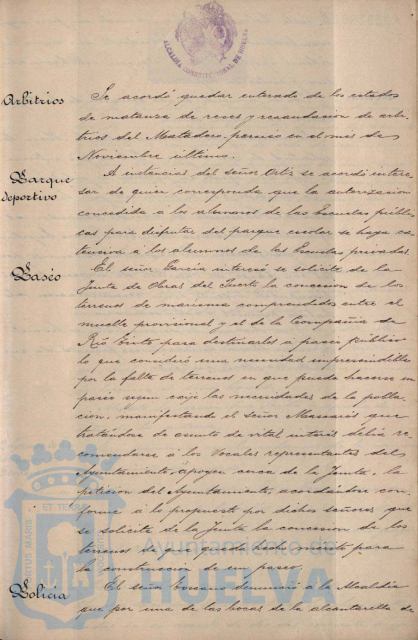 ALCALDIA CONSTITUCIONAL DE HUELVA
Arbitrios
Se acordó quedar enterado de los estados
de matanza de reses y recaudación de arbi-
trios del Matadero, en el mes de
Noviembre último.
Parque
deportivo
A instancias del señor Ortiz se acordó intere-
sar de quien corresponda que la autorización
concedida a los alumnos de las Escuelas públi-
cas para disfrutar del parque escolar se haga es-
tensiva á los alumnos de las Escuelas privadas.
Paseo
El señor García interesó se solicite de la
Junta de Obras del Puerto la concesión de los
terrenos de marisma comprendidos entre el
muelle provisional y el de la Compañía de
Río Tinto para destinarlos a paseo público
lo que consideró una necesidad imprescindible
por la falta de terrenos en que pueda hacerse un
paseo segun exije las necesidades de la pobla-
cion, manifestando el señor que
tratándose de asunto de vital interés debía re-
comendarse á los Vocales representantes del
Ayuntamiento, apoyen cerca de la Junta, la
petición del Ayuntamiento, acordándose con-
forme á lo propuesto por dichos señores que
se solicite de la Junta la concesión de los
terrenos de que queda hecho mérito para
la construcción de un paseo.
Policía
El señor denunció á la Alcaldía
que por una de las bocas de la alcantarilla de
Ayuntamiento de
HUELVA